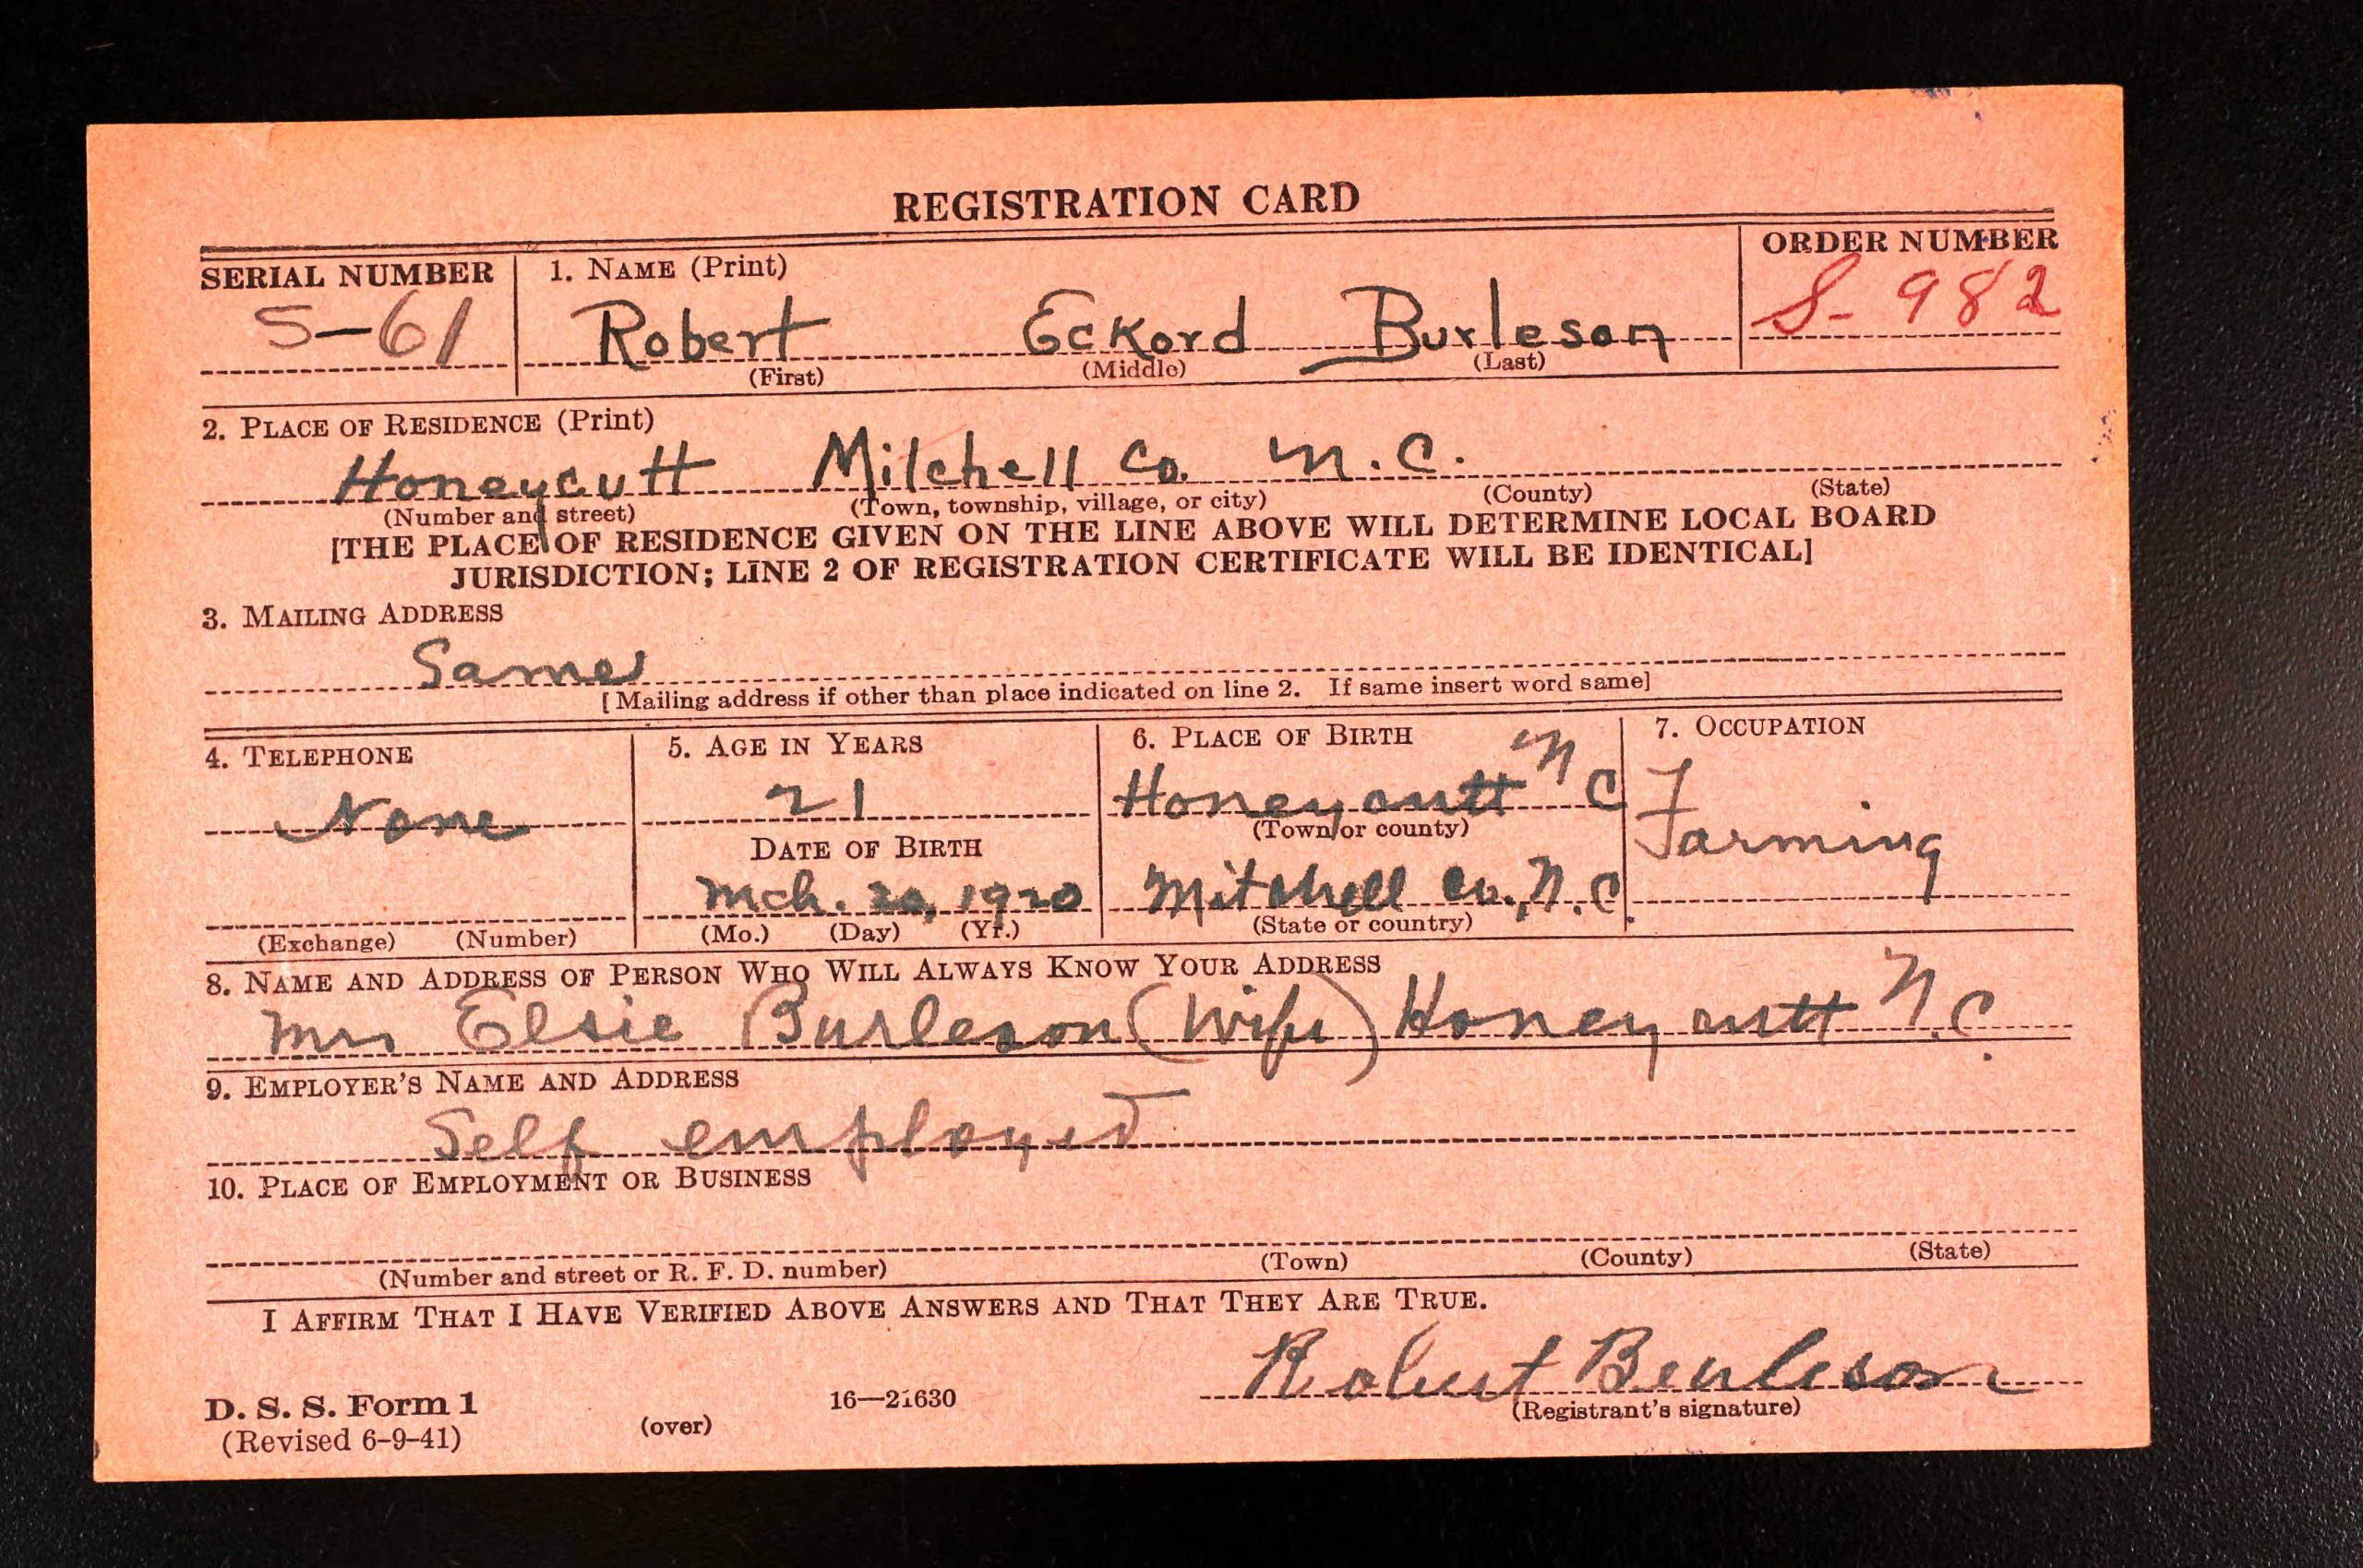 REGISTRATION CARD
SERIAL NUMBER
S-61
1. NAME (Print)
Robert Eckord Burleson
(First) (Middle) (Last)
ORDER NUMBER
S-982
2. PLACE OF RESIDENCE (Print)
Honeycutt Milchell Co. N.C.
(Number and street) (Town, township, village, or city) (County) (State)
[THE PLACE OF RESIDENCE GIVEN ON THE LINE ABOVE WILL DETERMINE LOCAL BOARD
JURISDICTION; LINE 2 OF REGISTRATION CERTIFICATE WILL BE IDENTICAL]
3. MAILING ADDRESS
Same
[Mailing address if other than place indicated on line 2. If same insert word same]
4. TELEPHONE
None
(Exchange) (Number)
5. AGE IN YEARS
21
DATE OF BIRTH
Mch. 20, 1920
(Mo.) (Day) (Yr.)
6. PLACE OF BIRTH
Honeycutt N C
(Town or county)
Mitchell Co., N.C.
(State or country)
7. OCCUPATION
Farming
8. NAME AND ADDRESS OF PERSON WHO WILL ALWAYS KNOW YOUR ADDRESS
Mrs Elsie Burleson (Wife) Honeycutt N.C.
9. EMPLOYER'S NAME AND ADDRESS
Self employed
10. PLACE OF EMPLOYMENT OR BUSINESS
(Number and street or R. F. D. number) (Town) (County) (State)
I AFFIRM THAT I HAVE VERIFIED ABOVE ANSWERS AND THAT THEY ARE TRUE.
Robert Burleson
(Registrant's signature)
D. S. S. Form 1
(Revised 6-9-41)
(over)
16—21630